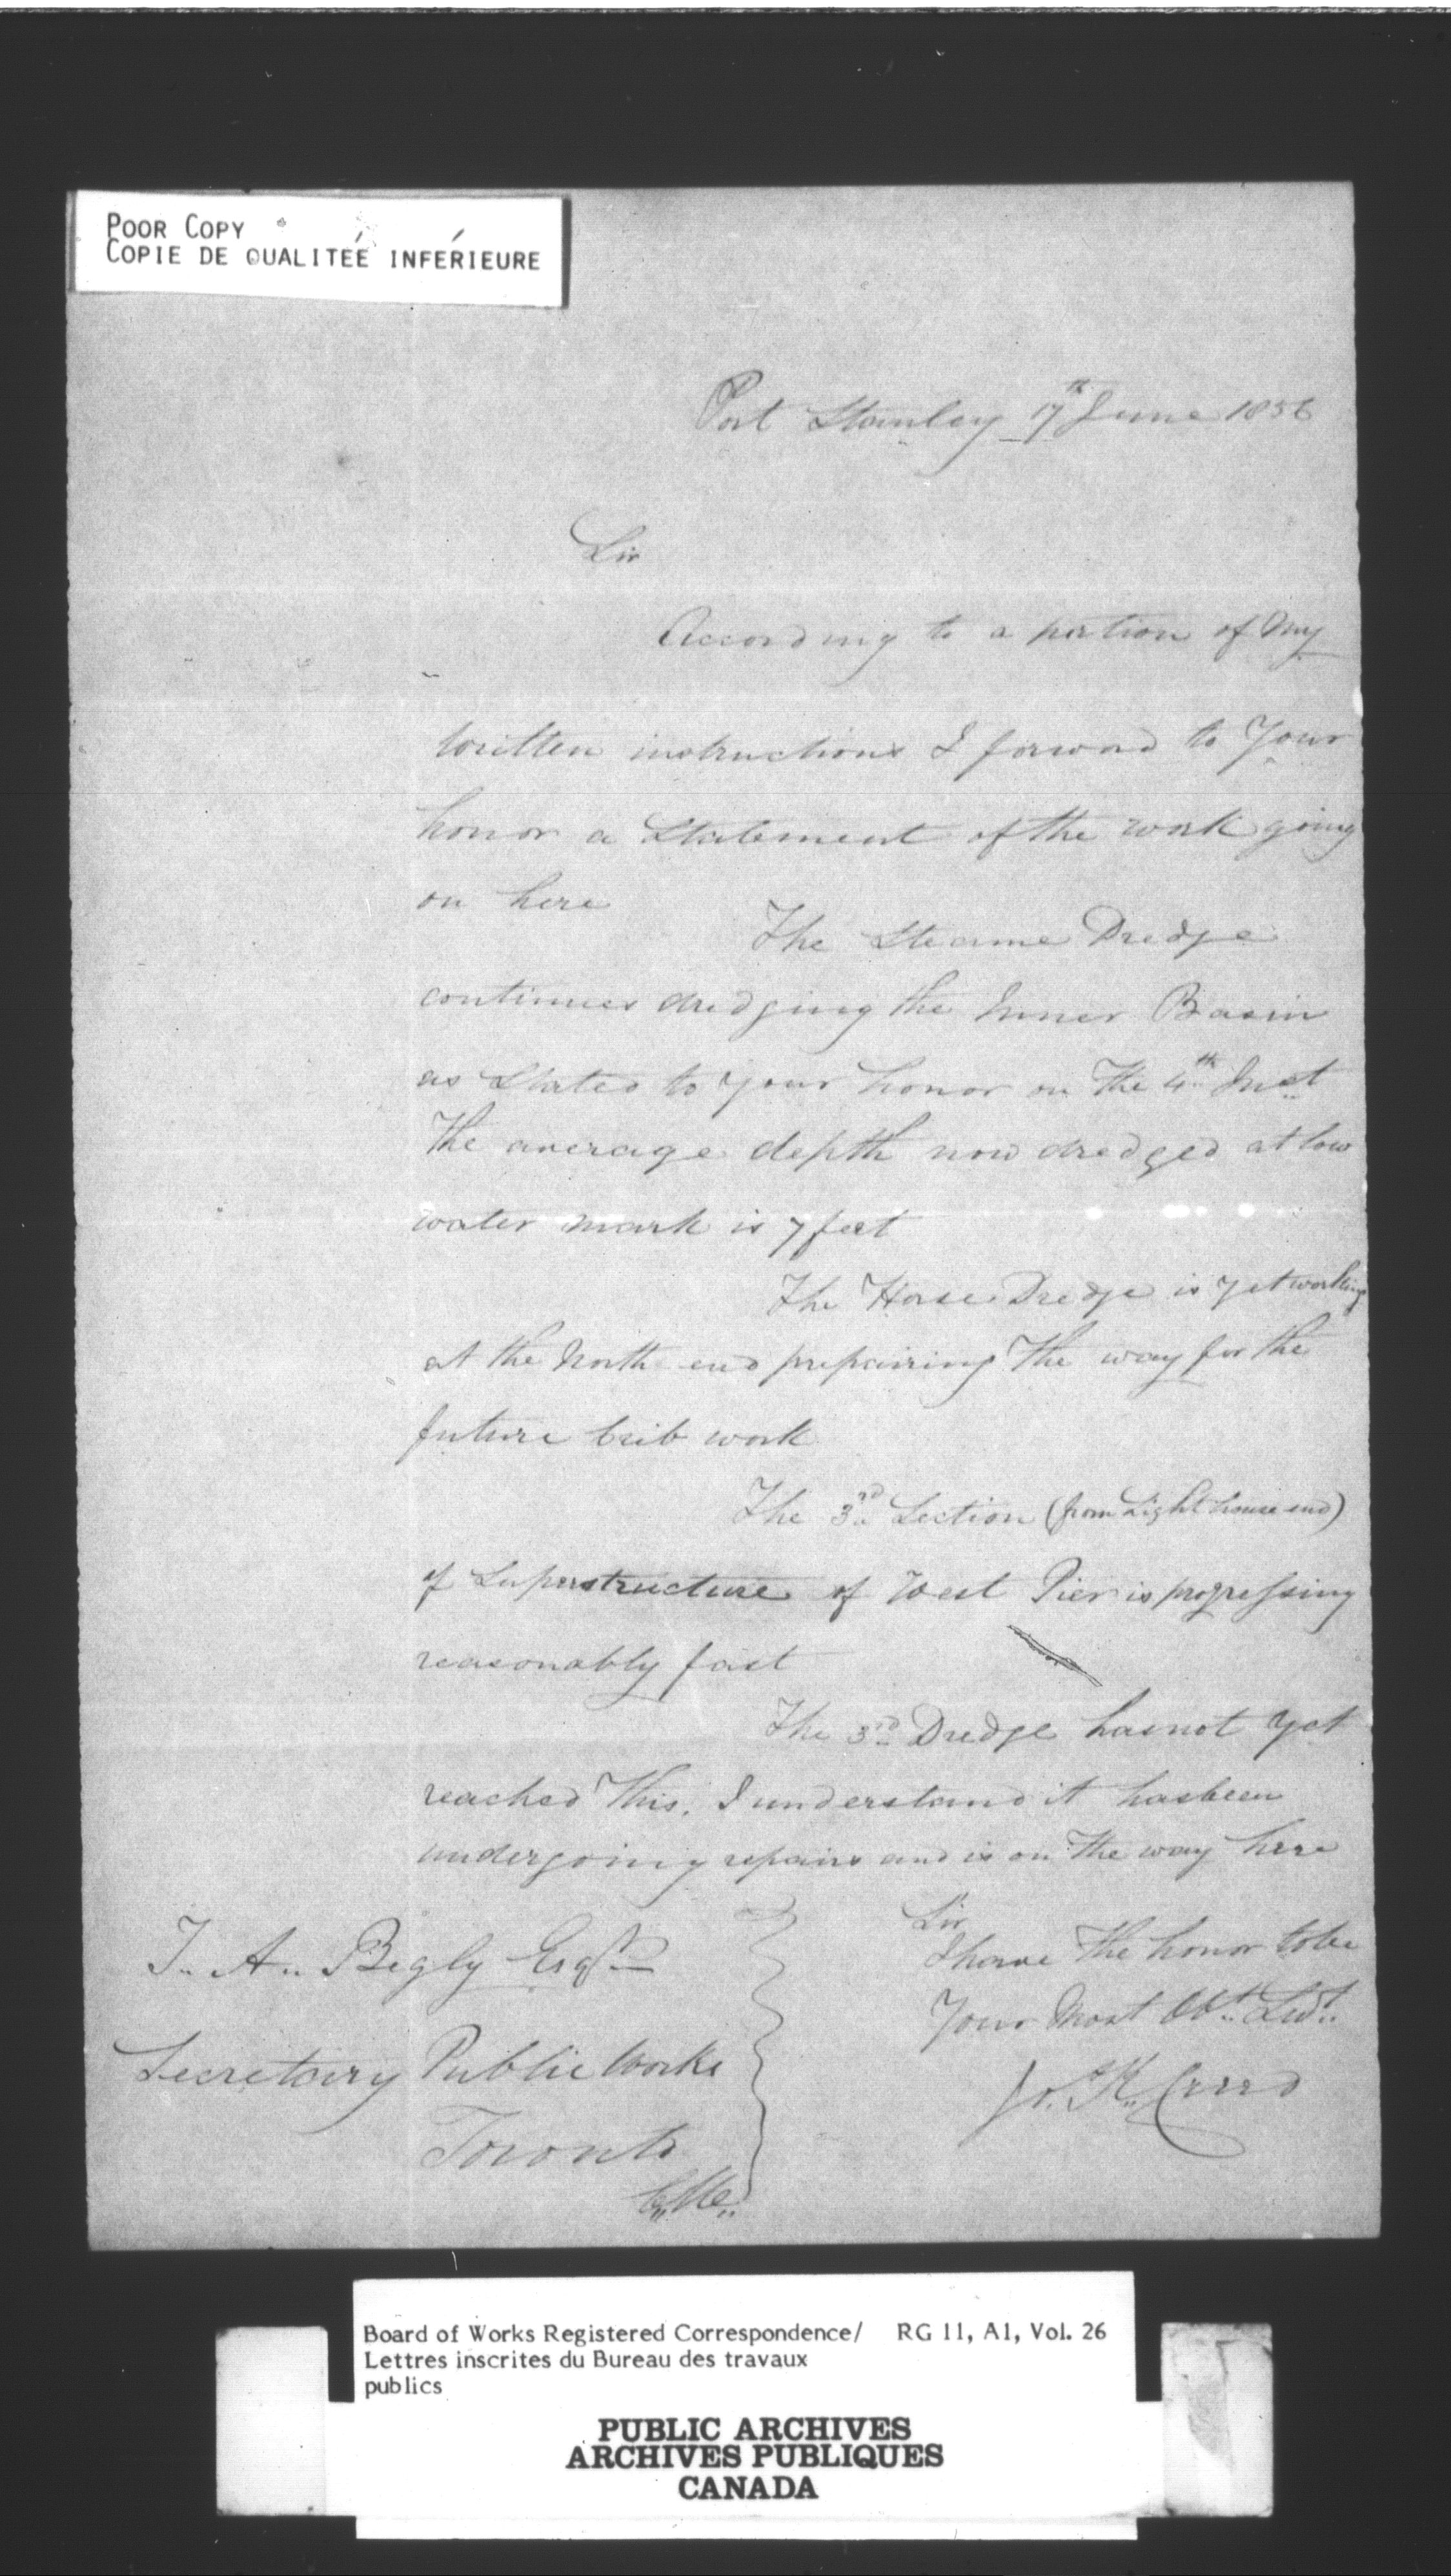 POOR COPY
COPIE DE QUALITÉE INFÉRIEURE
Port Stanley 17th June 1856
Sir
According to a portion of My
written instructions I forward to Your
honor a Statement of the work going
on here
The Steame Dredge
continues dredging the Inner Basin
as Stated to your honor on The 4th Inst
The average depth now dredged at low
water mark is 7 feet
The Horse Dredge is yet working
at the North end prepairing The way for the
future Crib work
The 3rd Section (from Light house end)
of Superstructure of West Pier is progressing
reasonably fast
The 3rd Dredge has not yet
reached This. I understand it has been
undergoing repairs and is on The way here
Sir
I have The honor to be
Your Most Obt. Sevt.
T. A. Begly Esqr
Secretary Public Works
Toronto
Board of Works Registered Correspondence/ RG 11, A1, Vol. 26
Lettres inscrites du Bureau des travaux
publics
PUBLIC ARCHIVES
ARCHIVES PUBLIQUES
CANADA